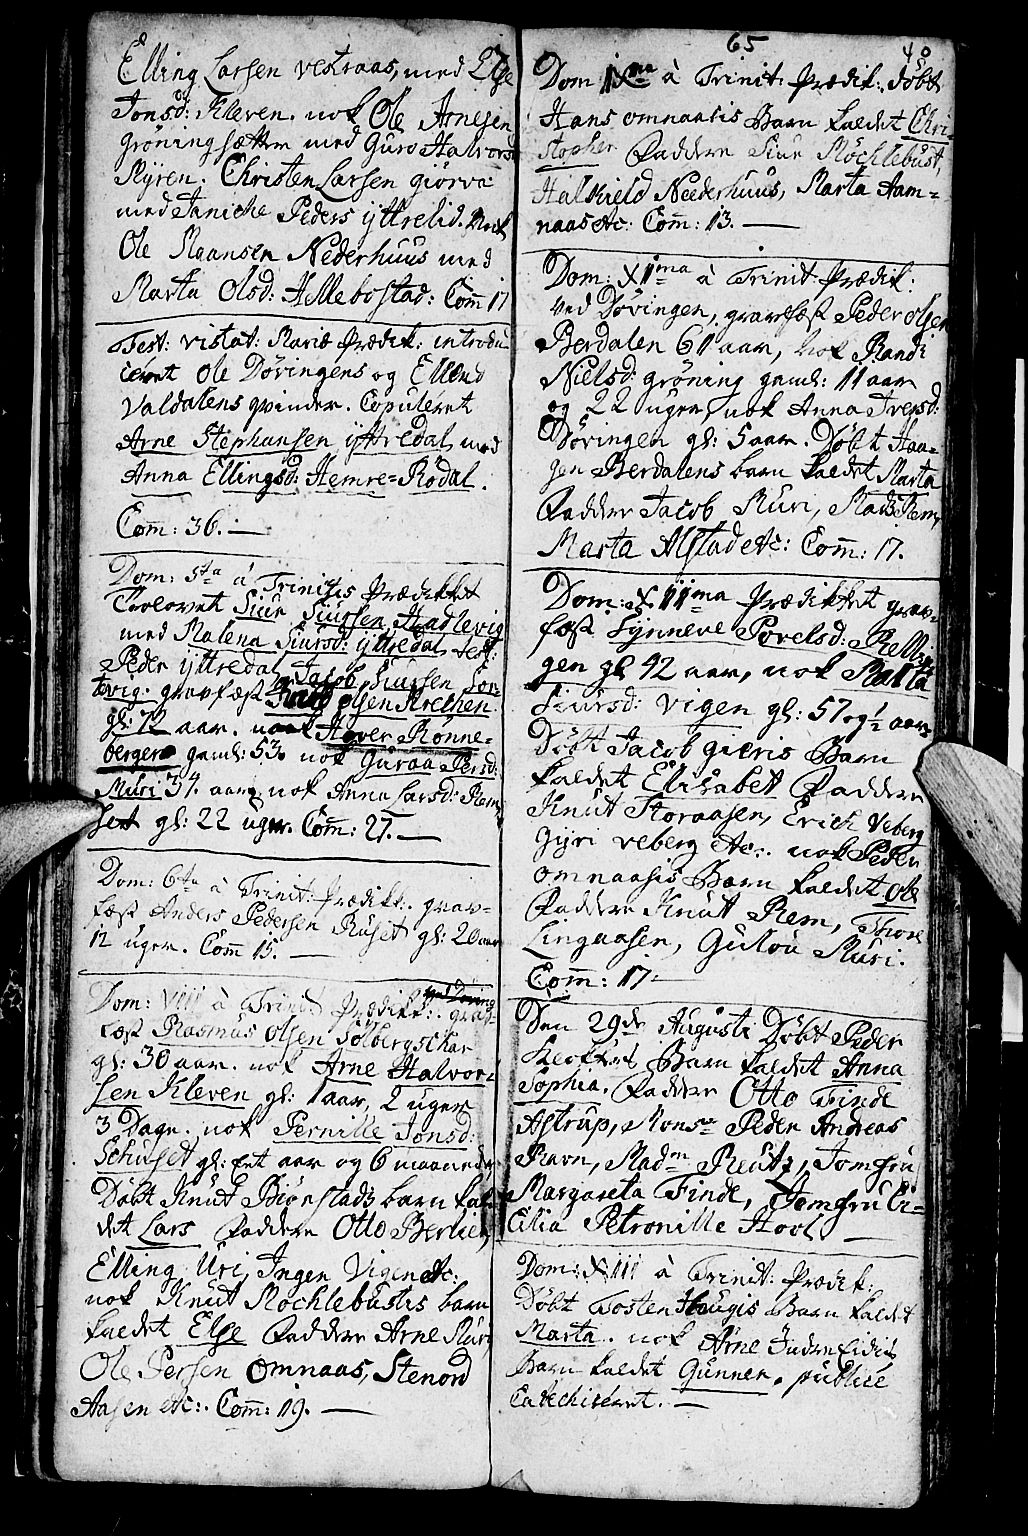 Elling Larsen vestraas, med Else
Jonsd: Kleven. nok Ole Arnesen
grøningsætter med Guro Halvorsd
Myren. Christen Larsen giørva
med Janicke Peders ÿttrelid. Nok
Ole Maansen Nederhuus med
Marta Olsd: Hellebostad: Com̄ 17
Fest: visitat: Mariæ Prædik: introdu
ceret Ole Døvingens og Ellend
Valdalens qvinder. Copuleret
Arne Stephansen ÿttredal med
Anna Ellingsd: Hemre=Rødal.
Com̄: 36. —
Dom: 5ta à Trinitis Prædikket
Troloved Siur Siursen Hadlevig
med Malena Siursd: ÿttredal, test:
Peder ÿttredal, Jacob Siursen Sor-
tevig. gravfæst Knut Olsen Krechen
gl: 72 aar. nok Haver Rønne=
berger gaml: 53. nok Guraa Persd:
Muri 34. aar. nok Anna Larsd: Rem
set gl: 22 uger. Com̄: 27. —
Dom: 6ta à Trinit: Prædikt: grav=
fæst Anders Pedersen Ruset gl: 20 aar
12 uger. Com̄ 15. —
ved Døving
Dom: VIII à Trinit Prædikt:. grav
fæst Rasmus Olsen Sølbergschar
gl: 30 aar. nok Arne Halvor=
sen Kleven gl: 1 aar, 2 uger
3 Dage. nok Pernille Jonsd:
Schuset gl: ett aar og 6 maaneder
Døbt Knut Biørstads barn kal
det Lars Faddere Otto Berlien,
Elling Uri, Ingen Vigen etc:
nok Knut Mochlebusts barn
kaldet Else Faddere Arne Muri,
Ole Persen Omnaas, Stenord
Aasen etc:. Com̄: 19. —
65
40
Dom IXna à Trinit: Prædik: Døbt
Hans omnaasis Barn kaldet Chri-
stopher Faddere Siur Mochlebust,
Halkield Nederhuus, Marta Aam=
naas etc: Com̄: 13. —
Dom: XIma à Trinit: Prædik:
ved Døvingen, gravfæst Peder Olsen
Berdalen 61 aar, Nok Randi
Nielsd: grøning gaml: 11 aar
og 22 uger, nok Anna Iversd:
Døvingen gl: 5 aar. Døbt Haa=
gen Berdalens barn kaldet Marta
Faddere Jacob Muri, Mads Rem,
Marta Alstad etc: Com̄: 17.
Dom: XIIma Prædikket grav-
fæst Synneve Povelsd: Relling
gen gl 42 aar, nok Marta
Siursd: Vigen gl: 57 og ½ aar.
Døbt Jacob gieris Barn
kaldet Elisabet Faddere
Knut Storaasen, Erich Veberg
Gÿri veberg etc:. nok Peder
omnaasis Barn kaldet Ole
Faddere Knut Rem, Thore
Lingaasen, Gulou Muri.
Com̄: 17.
Den 29de Augusti Døbt Peder
Barn kaldet Anna
Sophia. Faddere Otto Finde
Astrup, Monsr Peder Andreas
Ravn, Madm Reutz, Jomfru
Margareta Finde, Jomfru Ci=
cilia Petronille Hool —
Dom: XIII à Trinit: Prædik:
Døbt Tosten Haugis Barn kaldet
Marta. nok Arne Indre Eidis
Barn kaldet Gunner. publice
Catechiseret. —